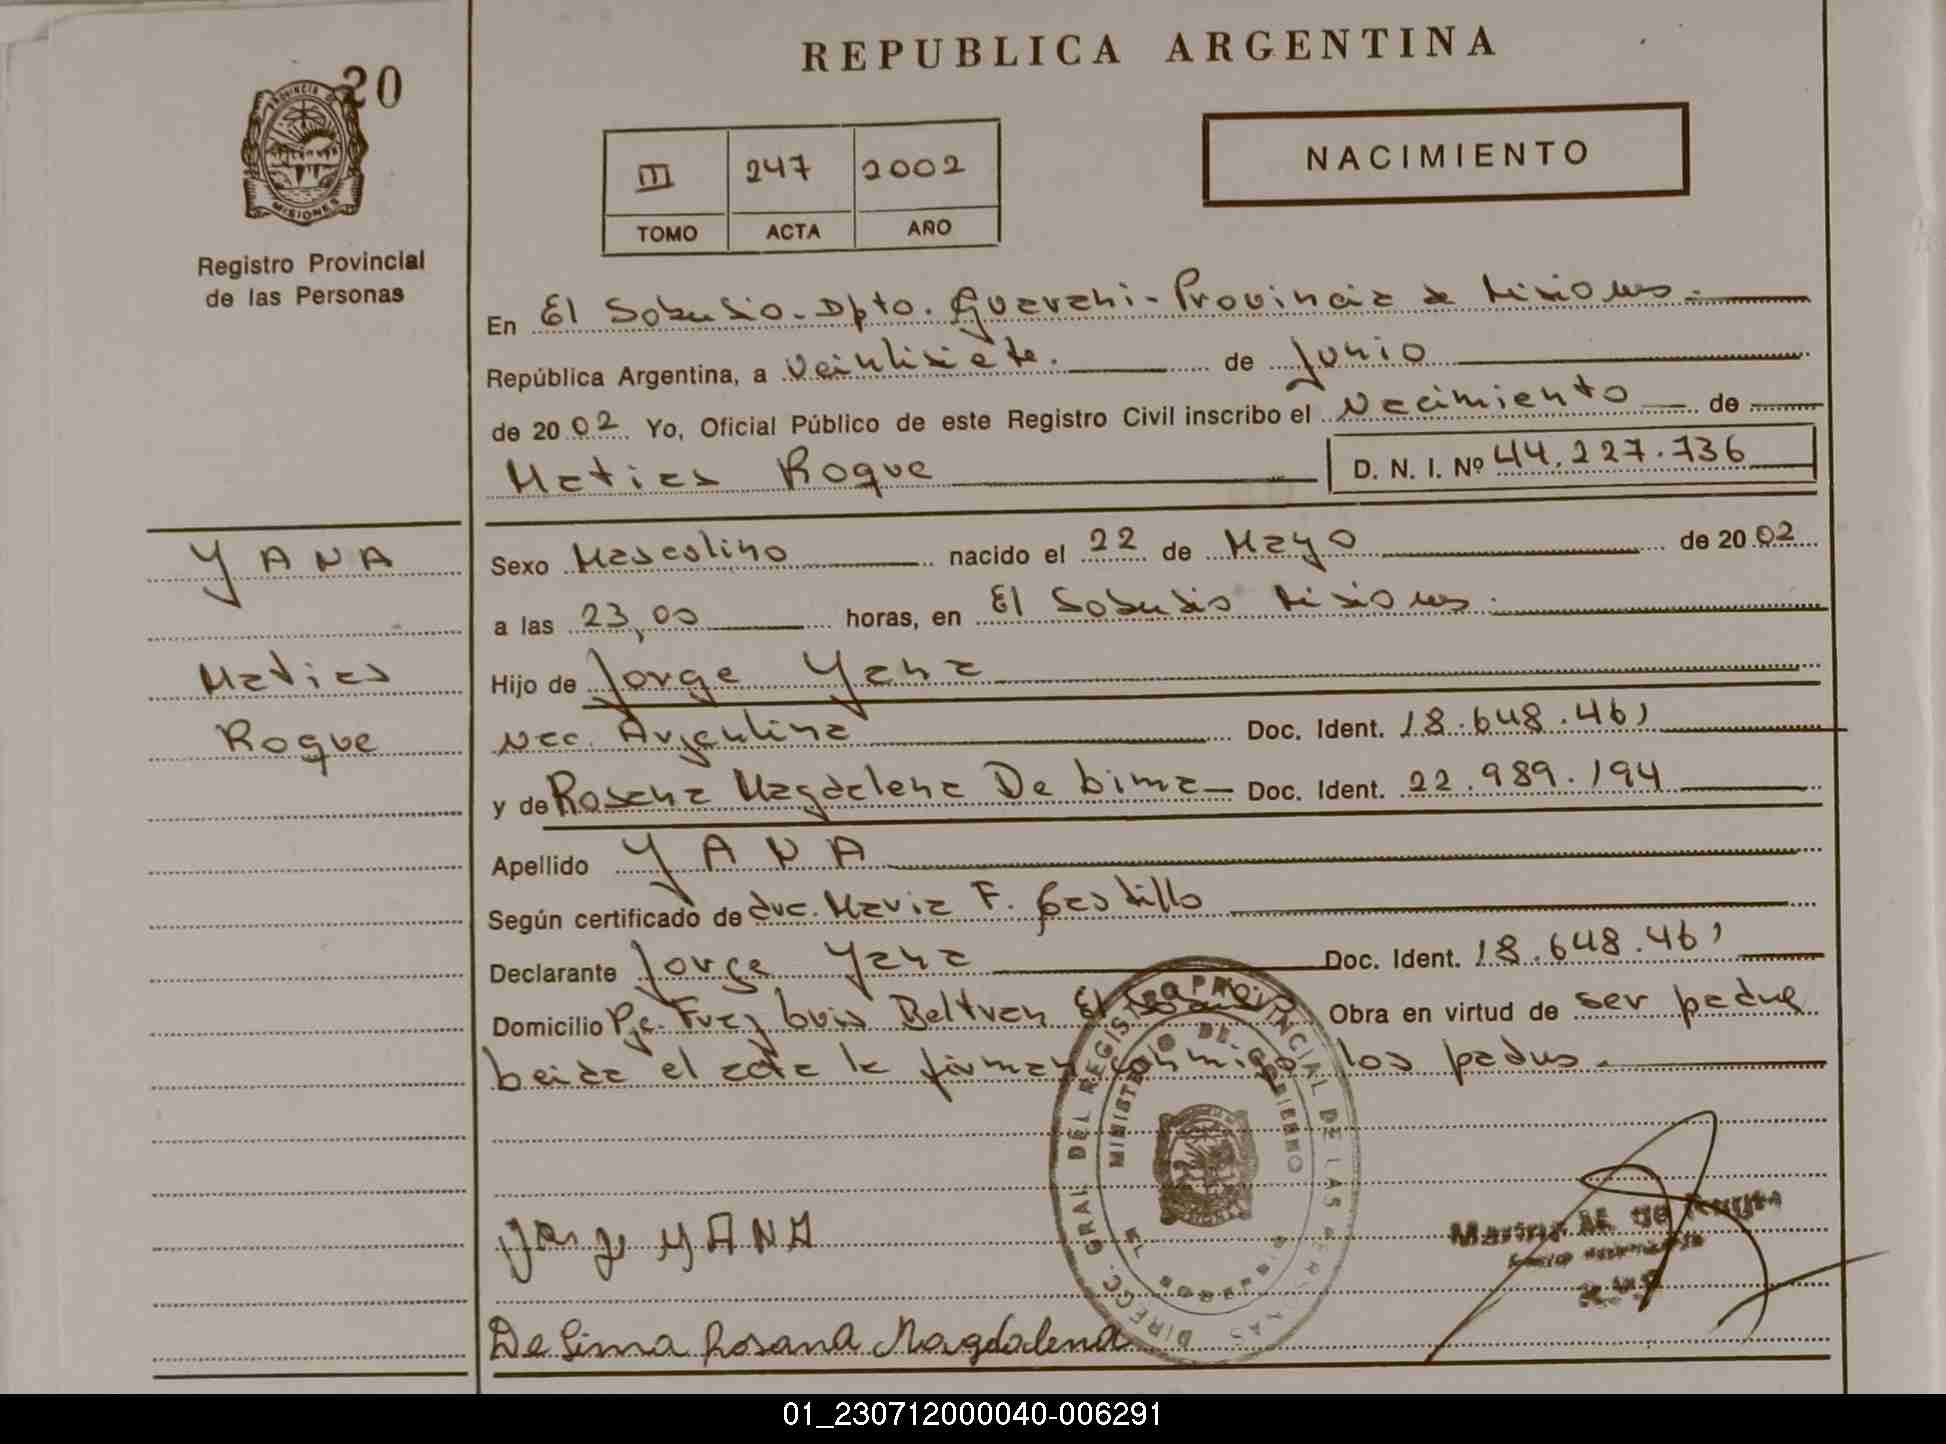 REPUBLICA ARGENTINA
20
PROVINCIA DE
MISIONES
Registro Provincial
de las Personas
III 247 2002
TOMO ACTA AÑO
NACIMIENTO
En El Soberbio - Dpto. Guarani - Provincia de Misiones.
República Argentina, a Veintisiete. de Junio
de 2002 Yo, Oficial Público de este Registro Civil inscribo el Nacimiento de
Matias Roque D. N. I. Nº 44.227.736
YANA
Matias
Roque
Sexo Masculino nacido el 22 de Mayo de 2002
a las 23,00 horas, en El Soberbio Misiones.
Hijo de Jorge Yana
Nac. Argentina Doc. Ident. 18.648.461
y de Rosana Magdalena De Lima Doc. Ident. 22.989.194
Apellido YANA
Según certificado de Maria F. Castillo
Declarante Jorge Yana Doc. Ident. 18.648.461
Domicilio Pje. Fray Luis Beltran El Soberbio Obra en virtud de ser padre
Leida el acta la firman conmigo los padres.
DIRECC. GRAL. DEL REGISTRO PROVINCIAL DE LAS PERSONAS
MINISTERIO DE GOBIERNO
MISIONES
Jorge YANA
De Lima Rosana Magdalena
01_230712000040-006291